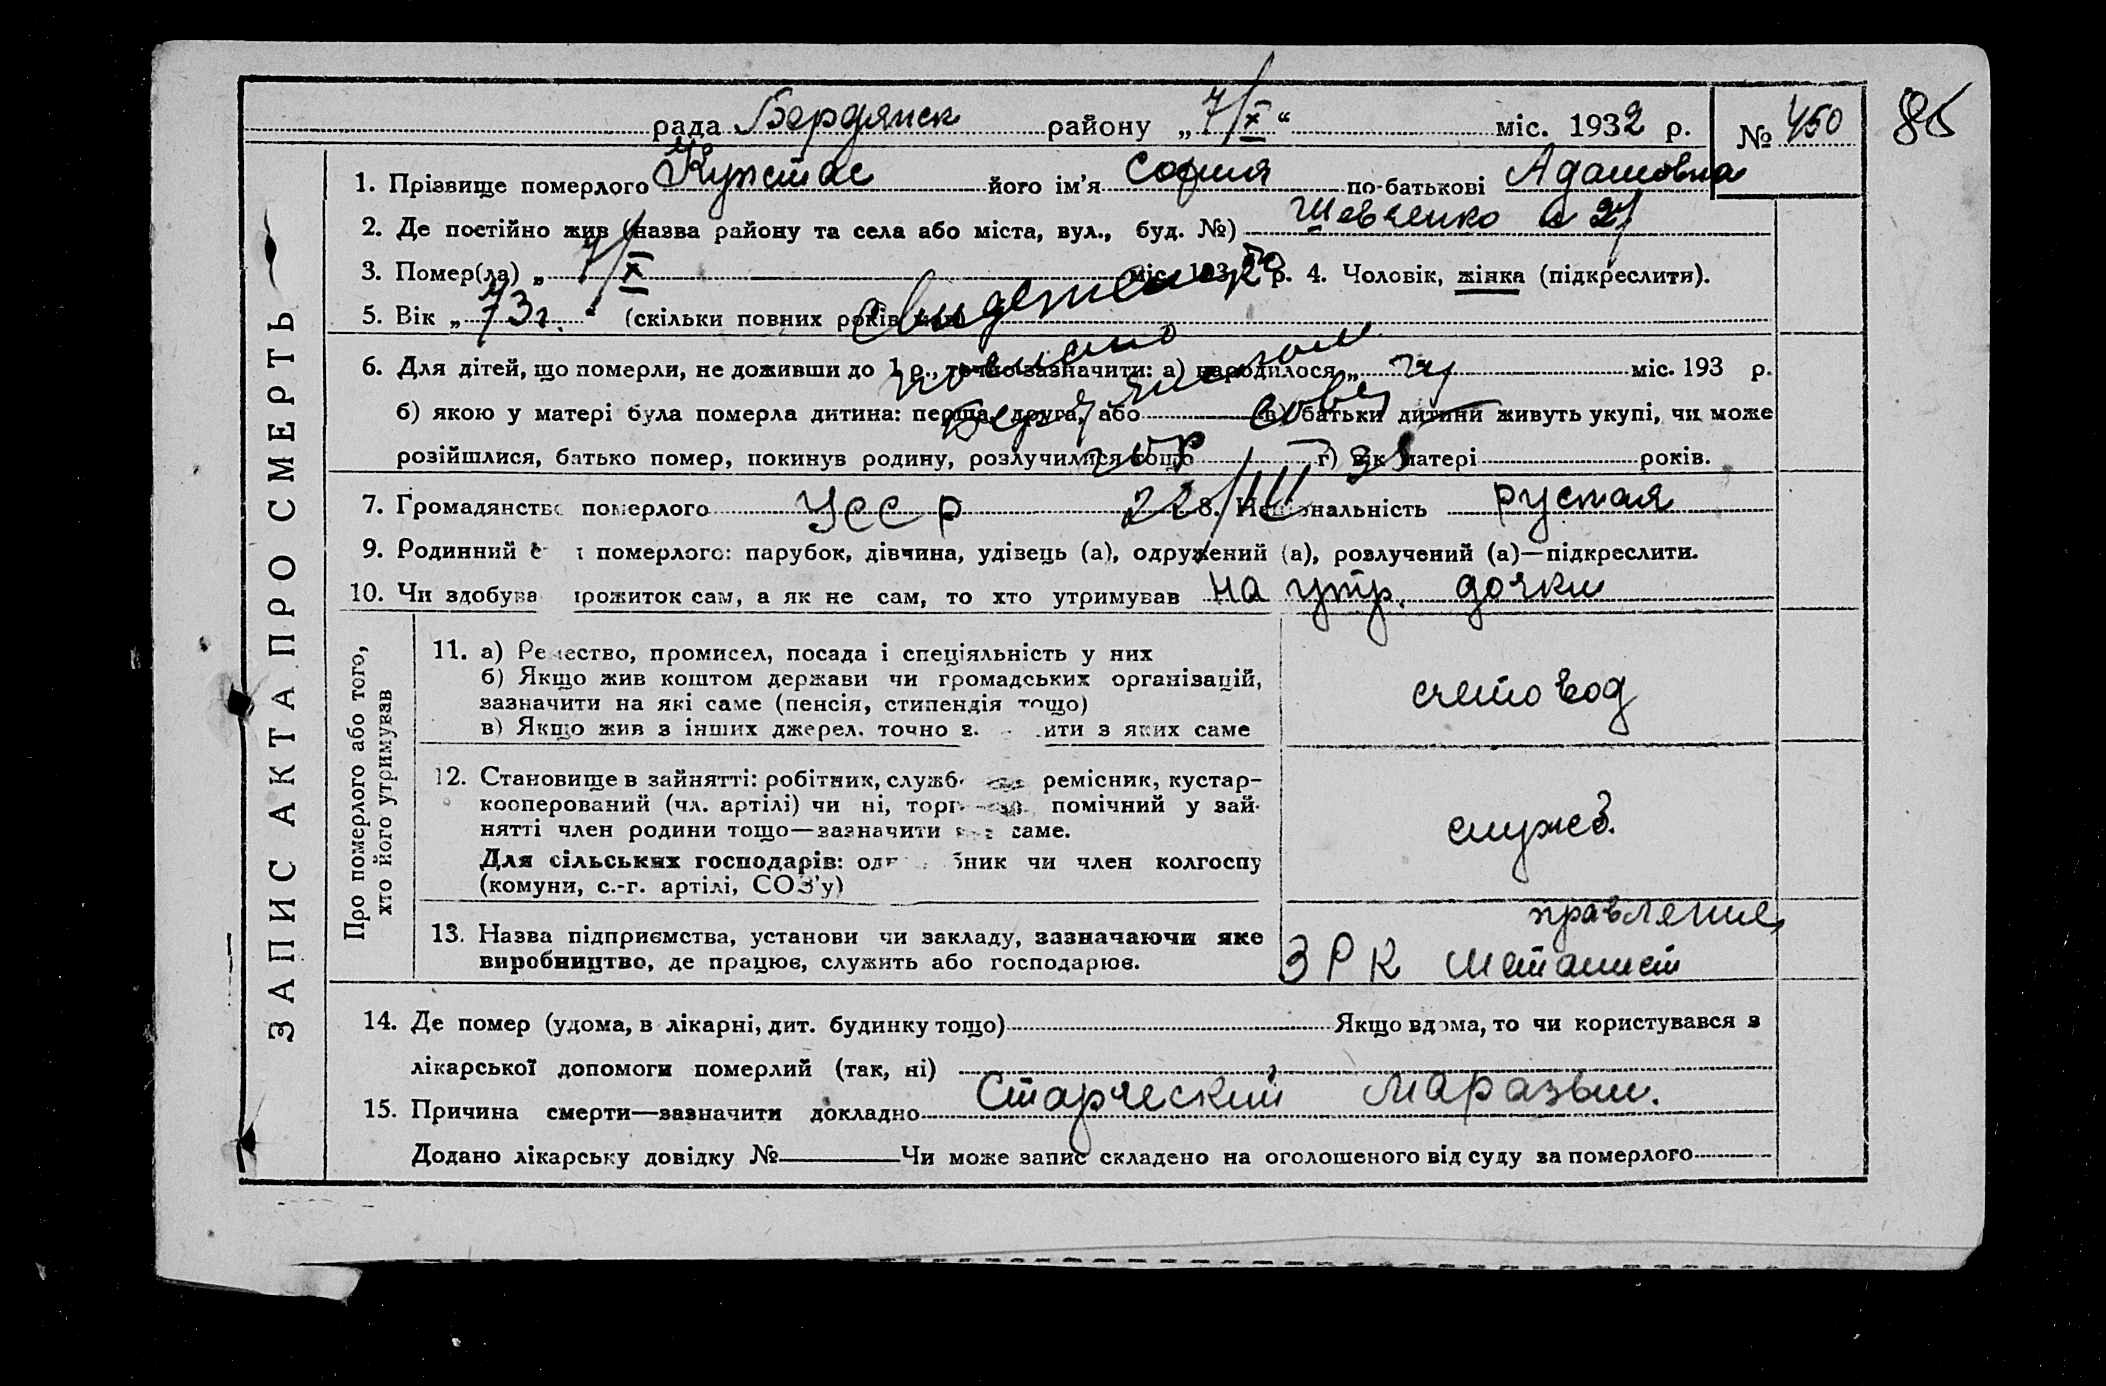 рада Бердянск району „7/X“ міс. 1932 р. № 450 86
1. Прізвище померлого Кунстас його ім’я София по-батькові Адамовна
2. Де постійно жив (назва району та села або міста, вул., буд. №) Шевченко 27
3. Помер(ла) „7/X міс. 1932 р. 4. Чоловік, жінка (підкреслити).
5. Вік „73 г.“ (скільки повних років
6. Для дітей, що померли, не доживши до 1 р., точно зазначити: а) народилося „ міс. 193 р.
б) якою у матері була померла дитина: перша, друга, або в) батьки дитини живуть укупі, чи може
розійшлися, батько помер, покинув родину, розлучилися тощо г) вік матері років.
7. Громадянство померлого УССР 8. Національність руская
9. Родинний померлого: парубок, дівчина, удівець (а), одружений (а), розлучений (а)—підкреслити.
10. Чи здобува прожиток сам, а як не сам, то хто утримував на утр. дочки
ЗАПИС АКТА ПРО СМЕРТЬ
Про померлого або того, хто його утримував
11. а) Ремество, промисел, посада і спеціяльність у них
б) Якщо жив коштом держави чи громадських організацій,
зазначити на які саме (пенсія, стипендія тощо)
в) Якщо жив з інших джерел, точно з ити з яких саме
счетовод
12. Становище в зайнятті: робітник, служб ремісник, кустар-
кооперований (чл. артілі) чи ні, торг помічний у зай-
нятті член родини тощо—зазначити саме.
Для сільських господарів: од бник чи член колгоспу
(комуни, с.-г. артілі, СОЗ’у)
служб.
13. Назва підприємства, установи чи закладу, зазначаючи яке
виробництво, де працює, служить або господарює.
правление
ЗРК Металист
14. Де помер (удома, в лікарні, дит. будинку тощо) Якщо вдома, то чи користувався з
лікарської допомоги померлий (так, ні)
15. Причина смерти—зазначити докладно Старческий маразьм.
Додано лікарську довідку № Чи може запис складено на оголошеного від суду за померлого
Свидетельство
Бердянским
гор советом
22/III 35